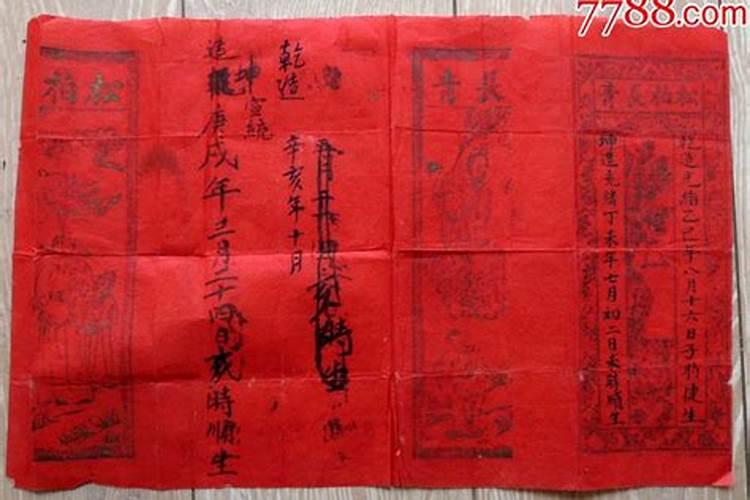 7788.com
松柏長青
乾造光緒乙巳年八月十六日子時健生
坤造光緒丁未年七月初二日未時順生
長青
乾造
宣統
辛亥年十月
時生
坤
造
庚戌年三月二十四日戌時順生
松柏